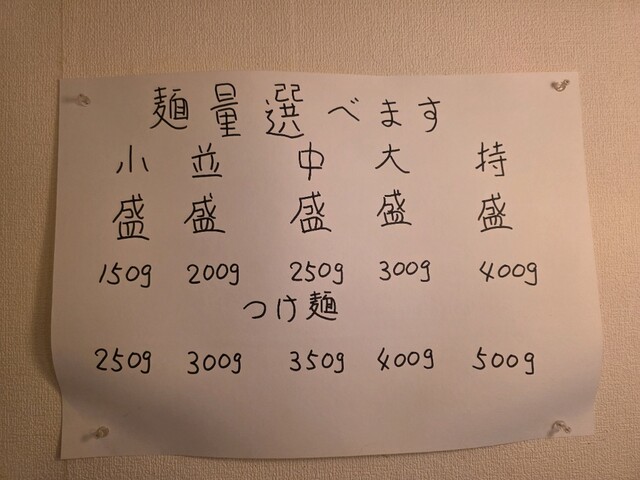 麺量選べます
小盛 並盛 中盛 大盛 持盛
150g 200g 250g 300g 400g
つけ麺
250g 300g 350g 400g 500g